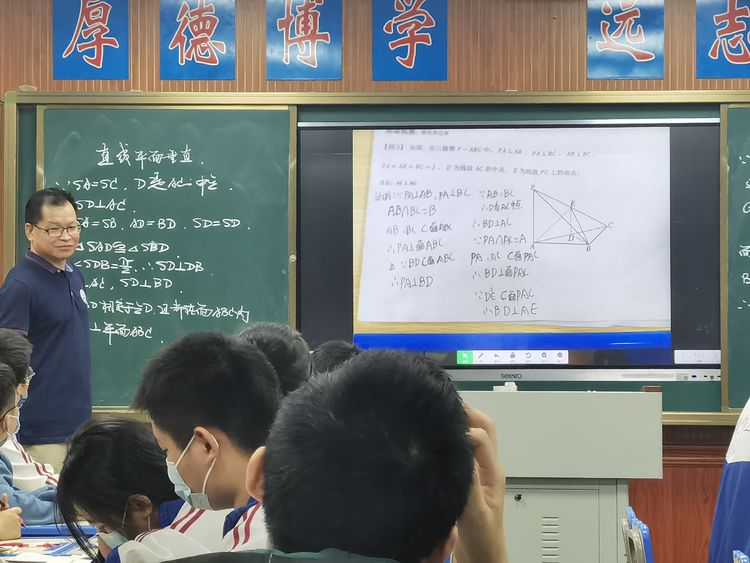 厚德博学
远志
直线平面垂直
∵SA=SC，D是AC中点
SD⊥AC
=SB，AD=BD，SD=SD
△SAD≌△SBD
∴SD⊥DB
AC，SD⊥BD
⊥平面ABC
【例3】如图，在三棱锥 P-ABC 中，PA⊥AB，PA⊥BC，AB⊥BC，
PA=AB=BC=2，D 为线段 AC 的中点，E 为线段 PC 上的动点。
证明：∵PA⊥AB，PA⊥BC
AB∩BC=B
AB，BC⊂面ABC
∴PA⊥面ABC
∵BD⊂面ABC
∴PA⊥BD
∵AB=BC
∴D为AC中点
∴BD⊥AC
∵PA∩AC=A
PA，AC⊂面PAC
∴BD⊥面PAC
∵DE⊂面PAC
∴BD⊥AE
P
E
C
A
D
B
seewo